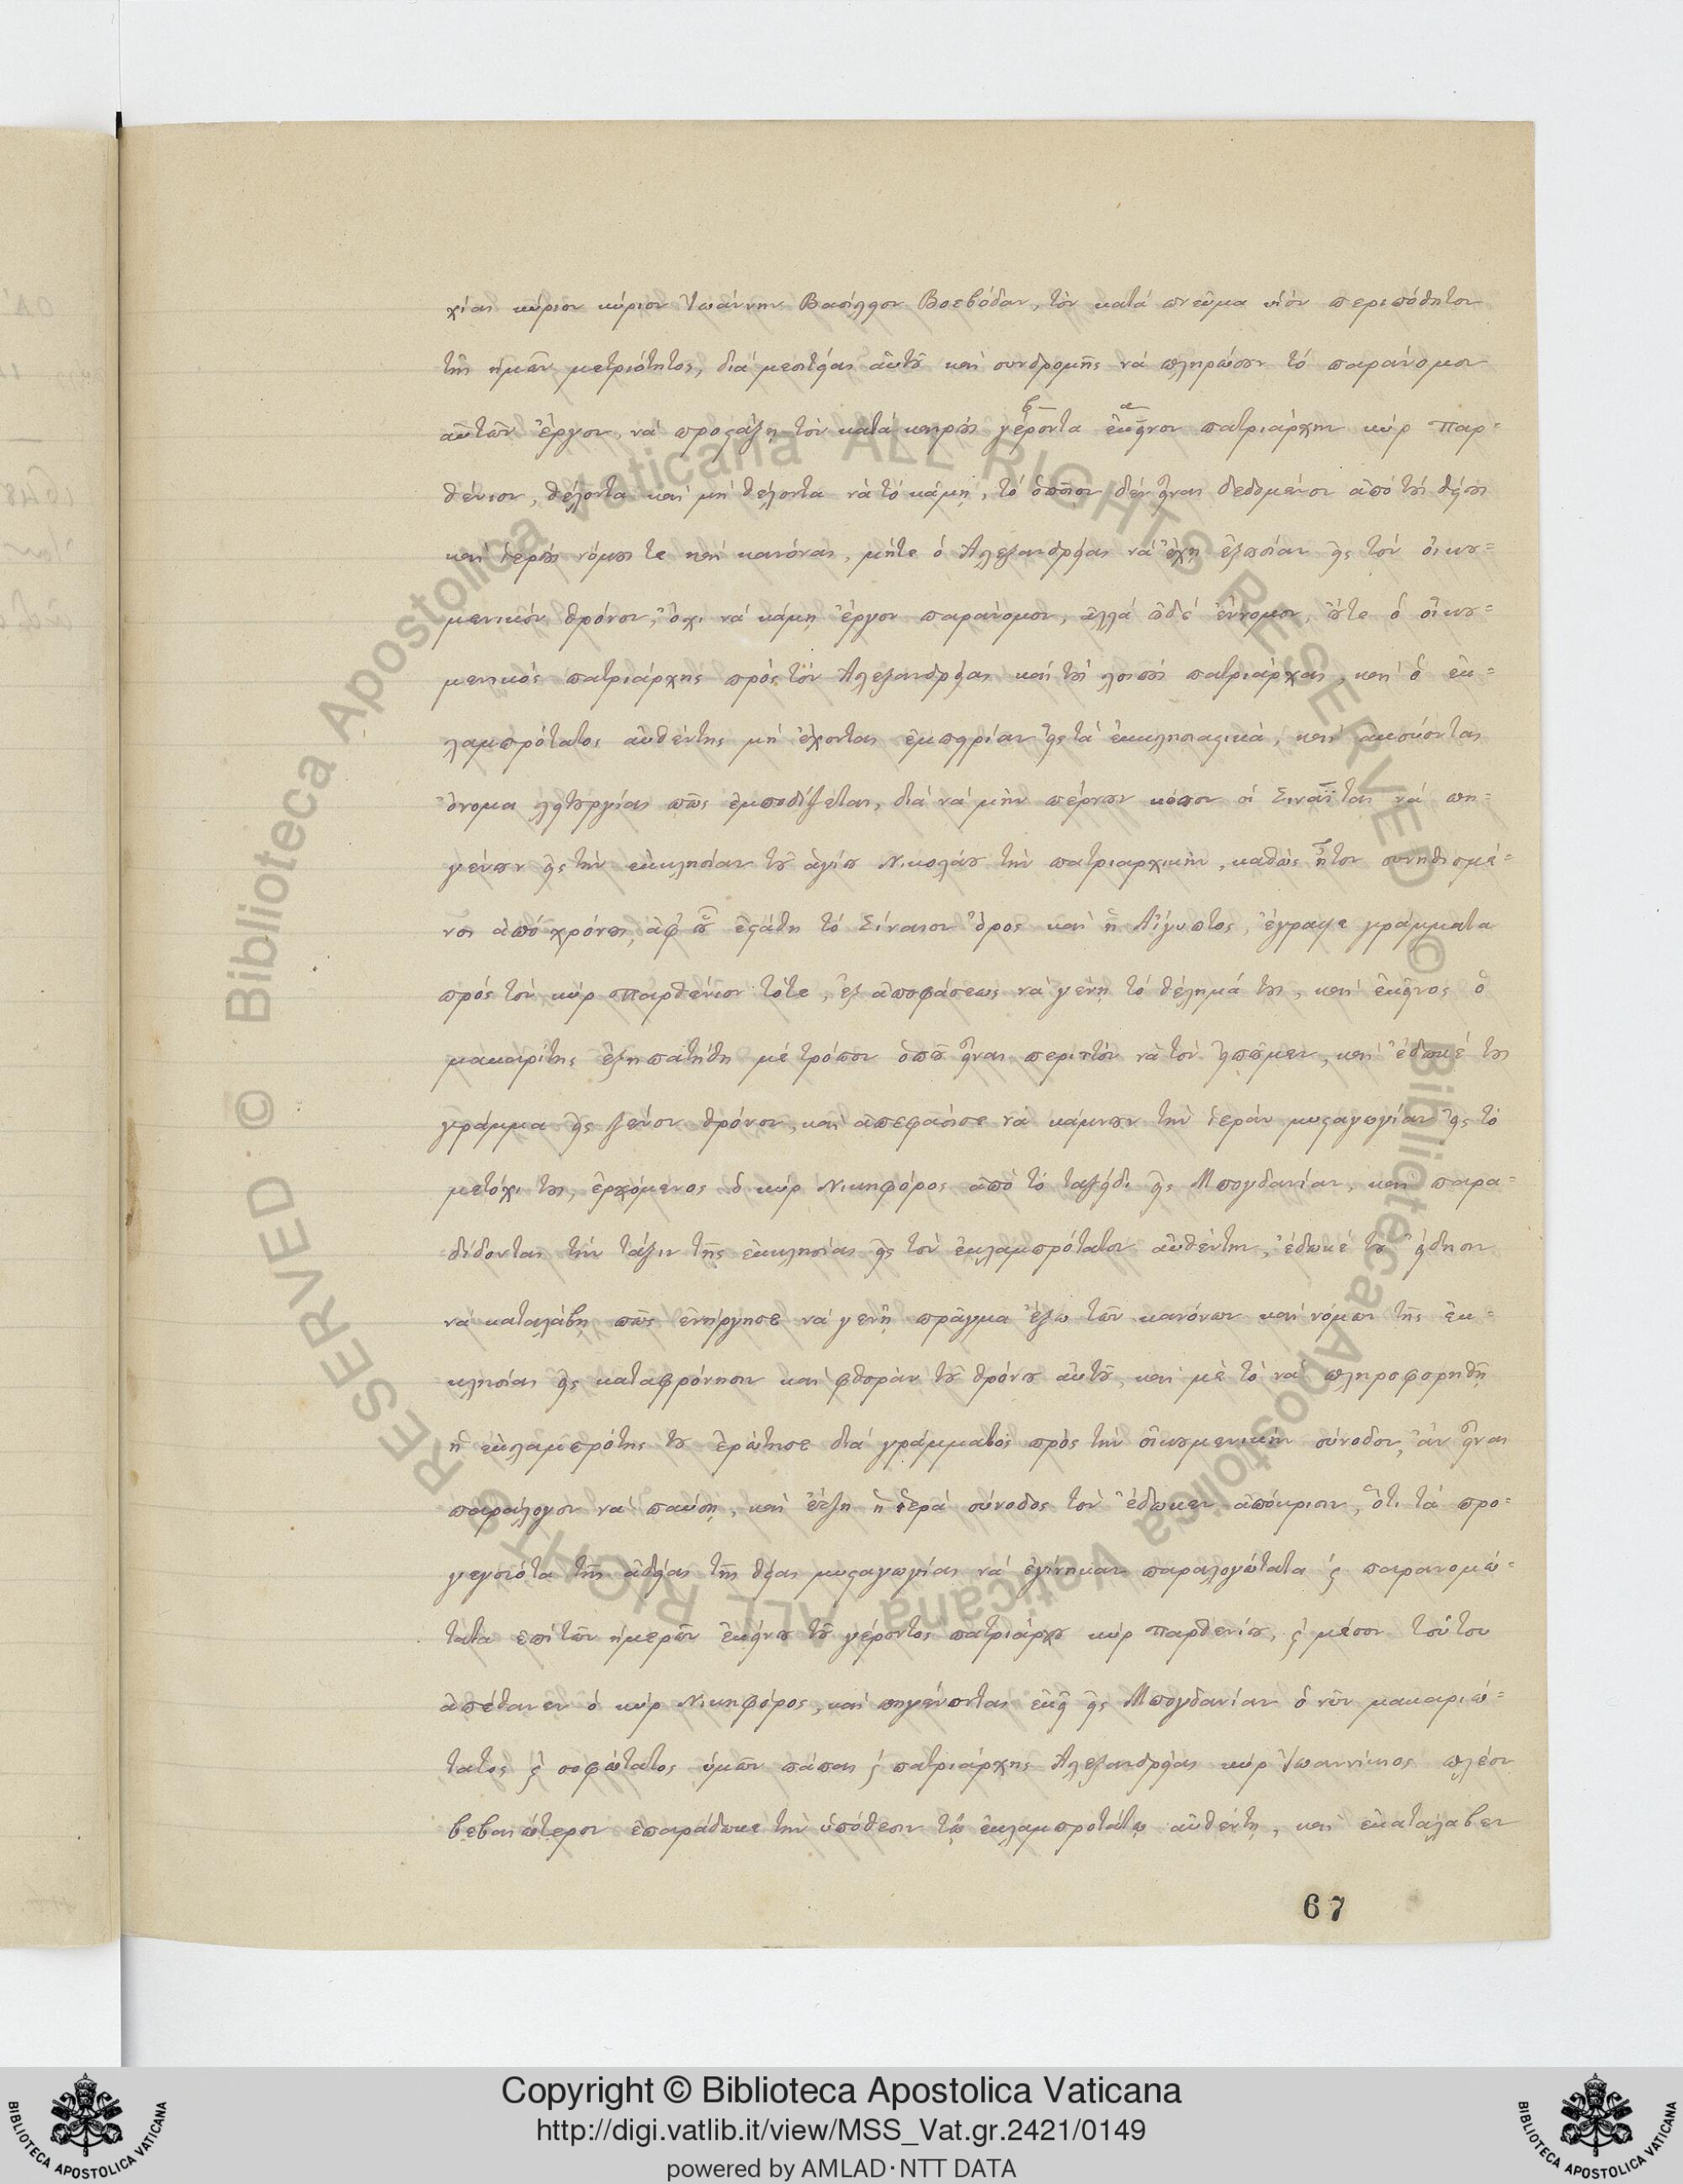 χίας κύριον κύριον Ἰωάννην Βασίλειον Βοεβόδαν, τὸν κατά πνεῦμα υἱόν περιπόθητον
τῆς ἡμῶν μετριότητος, διά μεσιτείας αὐτοῦ καί συνδρομῆς νά πληρώσουν τό παράνομον
αὐτῶν ἔργον, νά προστάξῃ τόν κατά καιρούς γέροντα ἐκεῖνον πατριάρχην κύρ Παρ=
θένιον, θέλοντα καί μή θέλοντα νά τό κάμῃ, τό ὁποῖον δέν εἶναι δεδομένον ἀπό τούς θείους
καί ἱερούς νόμους τε καί κανόνας, μήτε ὁ Ἀλεξανδρείας νά ἔχῃ ἐξουσίαν εἰς τόν οἰκου=
μενικόν θρόνον, ὄχι νά κάμῃ ἔργον παράνομον, ἀλλά οὐδέ ἔννομον, οὔτε ὁ οἰκου=
μενικός πατριάρχης πρός τόν Ἀλεξανδρείας καί τούς λοιπούς πατριάρχας, καί ὁ ἐκ=
λαμπρότατος αὐθέντης μή ἔχοντας ἐμπειρίαν εἰς τά ἐκκλησιαστικά, καί ἀκούοντας
ὄνομα λειτουργίας πῶς ἐμποδίζεται, διά νά μήν πέρνουν κόπον οἱ Σιναῗται νά πη=
γένουν εἰς τήν ἐκκλησίαν τοῦ ἁγίου Νικολάου τήν πατριαρχικήν, καθώς ἦτον συνηθισμέ=
νοι ἀπό χρόνους, ἀφ' οὗ ἐστάθη τό Σίναιον ὄρος καί ἡ Αἴγυπτος, ἔγραψε γράμματα
πρός τόν κύρ Παρθένιον τότε, ἐξ ἀποφάσεως νά γένῃ τό θέλημά τους, καί ἐκεῖνος ὁ
μακαρίτης ἐξηπατήθη μέ τρόπον ὁποῦ εἶναι περιττόν νά τόν εἰποῦμεν, καί ἔδωκέ τους
γράμμα εἰς ξένον θρόνον, καί ἀπεφάσισε νά κάμνουν τήν ἱεράν μυσταγωγίαν εἰς τό
μετόχι τους, ἐρχόμενος ὁ κύρ Νικηφόρος ἀπό τό ταξείδι εἰς Μπογδανίαν, καί παρα=
δίδοντας τήν τάξιν τῆς ἐκκλησίας εἰς τόν ἐκλαμπρότατον αὐθέντην, ἔδωκέ του εἴδησιν
νά καταλάβῃ πῶς ἐνήργησε νά γενῇ πρᾶγμα ἔξω τῶν κανόνων καί νόμων τῆς ἐκ=
κλησίας εἰς καταφρόνησιν καί φθοράν τοῦ θρόνου αὐτοῦ, καί μέ τό νά πληροφορηθῇ
ἡ ἐκλαμπρότης του ἐρώτησε διά γράμματος πρός τήν οἰκουμενικήν σύνοδον, ἄν εἶναι
παράλογον νά παύσῃ, καί ἡ ἱερά σύνοδος τόν ἔδωκεν ἀπόκρισιν, ὅτι τά προ=
γεγονότα τῆς ἀδείας τῆς θείας μυσταγωγίας νά ἐγίνηκαν παραλογώτατα ϛ παρανομώ=
τατα ἐπί τῶν ἡμερῶν ἐκείνου τοῦ γέροντος πατριάρχου κύρ Παρθενίου, ϛ μέσον τούτου
ἀπέθανεν ὁ κύρ Νικηφόρος, καί πηγένοντας ἐκεῖ εἰς Μπογδανίαν ὁ νῦν μακαριώ=
τατος ϛ σοφώτατος ὑμῶν πάπας ϛ πατριάρχης Ἀλεξανδρείας κύρ Ἰωαννίκιος πλέον
βεβαιώτερον ἐπαράδωκε τήν ὑπόθεσιν τῷ ἐκλαμπροτάτῳ αὐθέντῃ, καί ἐκατάλαβεν
67
Copyright © Biblioteca Apostolica Vaticana
http://digi.vatlib.it/view/MSS_Vat.gr.2421/0149
powered by AMLAD·NTT DATA
BIBLIOTECA APOSTOLICA VATICANA
BIBLIOTECA APOSTOLICA VATICANA
© Biblioteca Apostolica Vaticana ALL RIGHTS RESERVED
© Biblioteca Apostolica Vaticana ALL RIGHTS RESERVED